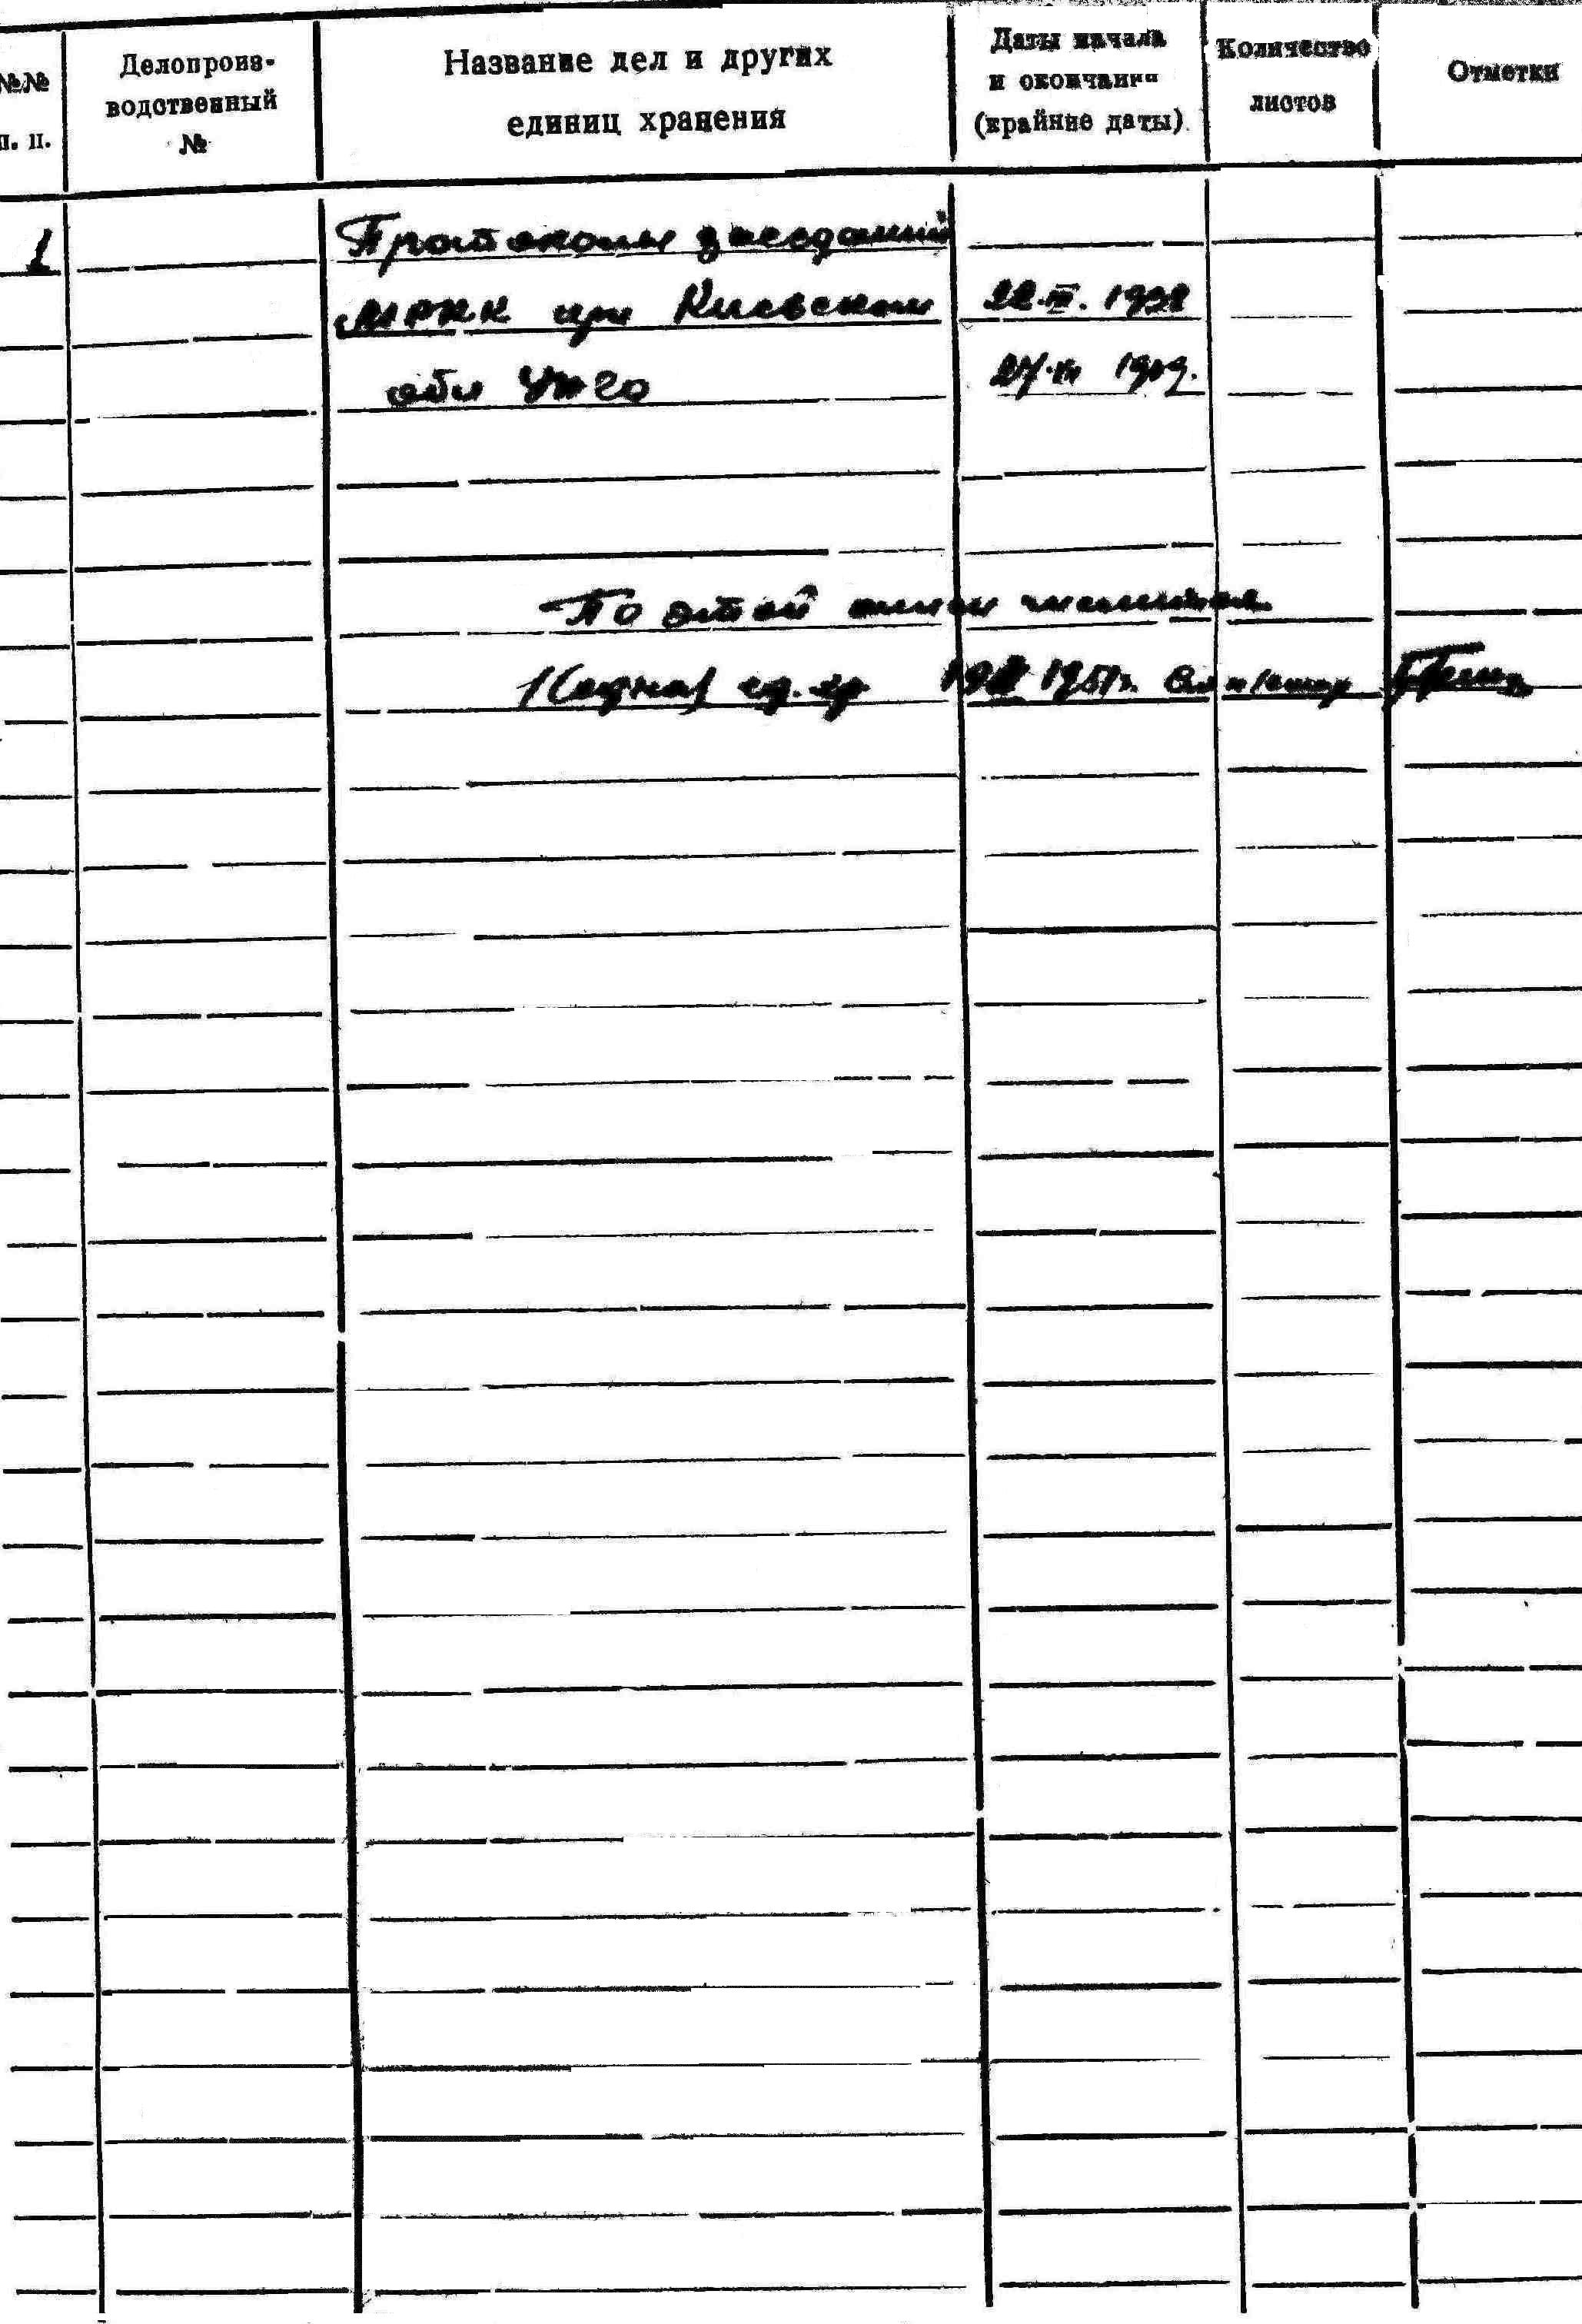 №№
п. п.
Делопроиз-
водственный
№
Название дел и других
единиц хранения
Даты начала
и окончания
(крайние даты)
Количество
листов
Отметки
1
Протоколы заседаний
при Киевском 22.III. 1938
обл
По этой описи числится
1 (одна) ед. хр 1951г.